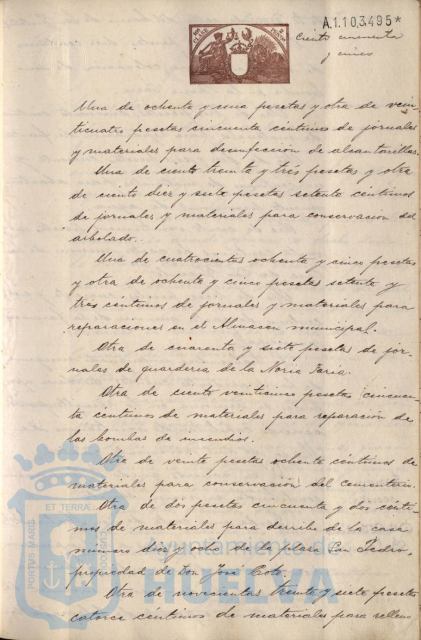 A.1.103.495*
Ciento cincuenta
y cinco
Una de ochenta y una pesetas y otra de vein-
ticuatro pesetas cincuenta céntimos de jornales
y materiales para desinfección de alcantarillas.
Una de ciento treinta y tres pesetas y otra
de ciento diez y siete pesetas setenta céntimos
de jornales y materiales para conservación del
arbolado.
Una de cuatrocientas ochenta y cinco pesetas
y otra de ochenta y cinco pesetas setenta y
tres céntimos de jornales y materiales para
reparaciones en el Almacen municipal.
Otra de cuarenta y siete pesetas de jor-
nales de guarderia de la Noria
Otra de ciento veinticinco pesetas cincuen-
ta céntimos de materiales para reparación de
las bombas de incendios.
Otra de veinte pesetas ochenta céntimos de
materiales para conservación del cementerio.
Otra de dos pesetas cincuenta y dos cénti-
mos de materiales para derribo de la casa
número diez y ocho de la plaza San Pedro
propiedad de Don José Coto.
Otra de novecientas treinta y siete pesetas
catorce céntimos de materiales para relleno
PORTUS MARIS
ET TERRAE
CUSTODIA
Ayuntamiento de
HUELVA